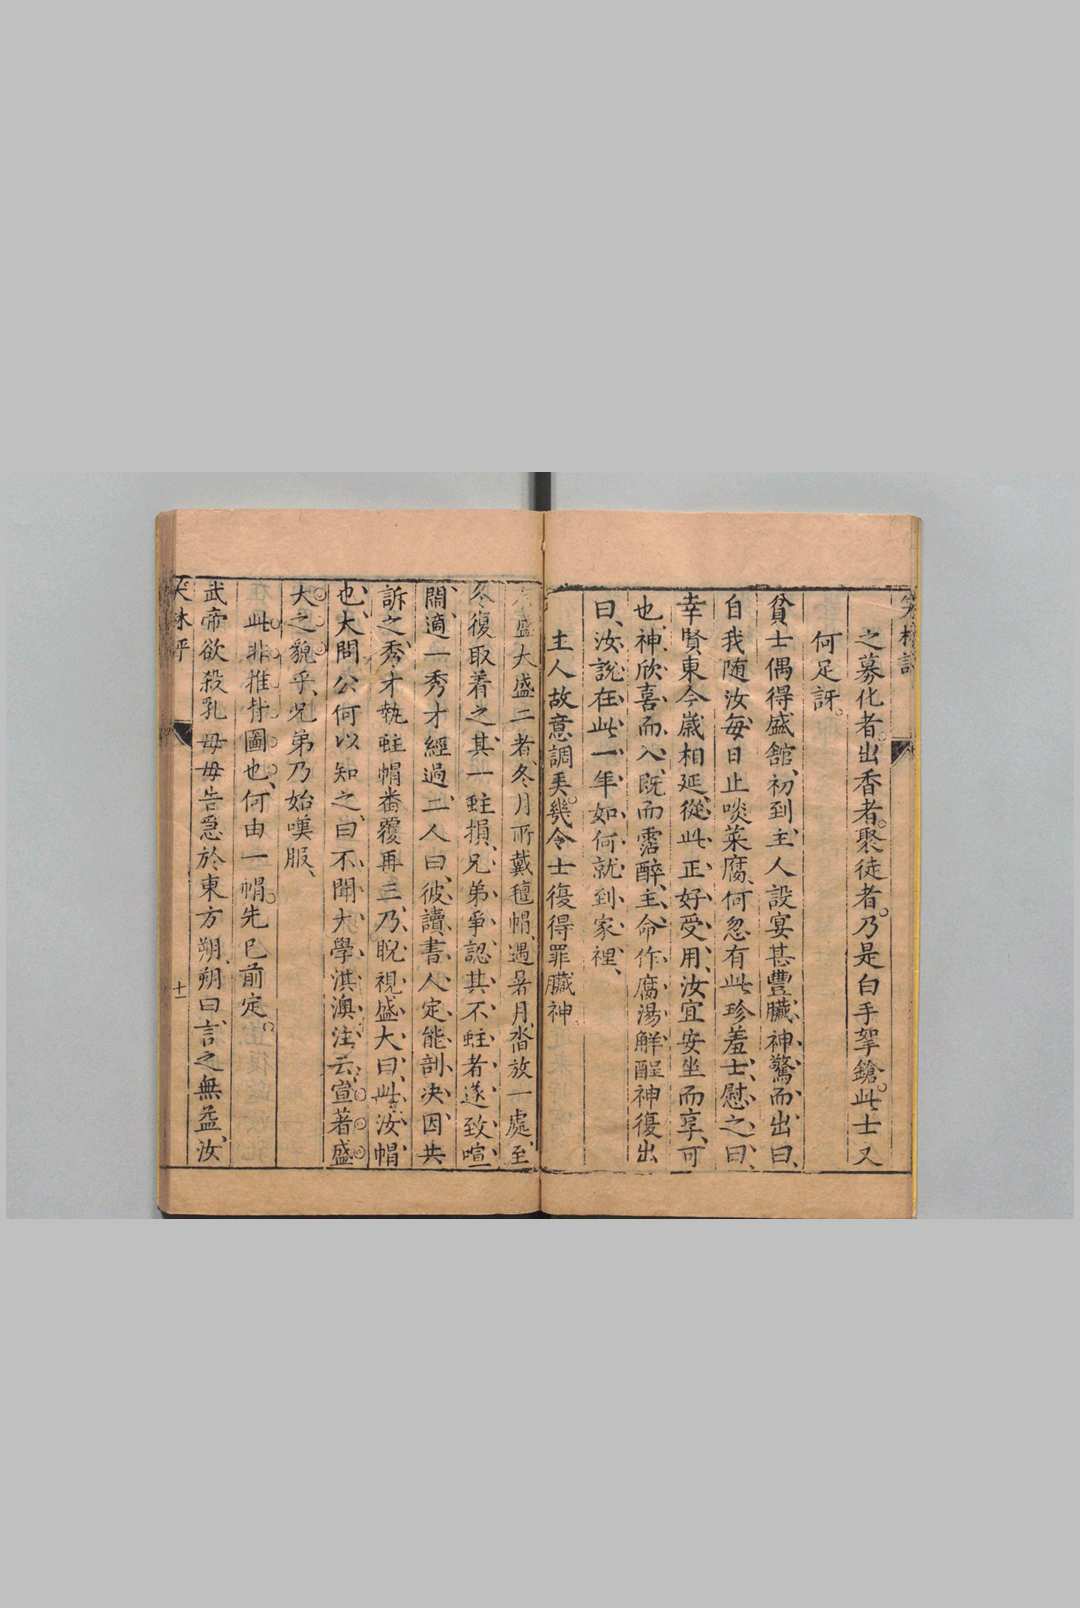 之募化者出香者聚徒者乃是白手拏鎗此士又
何足訝
貧士偶得盛舘初到主人設宴甚豐臟神驚而出曰
自我随汝每日止啖菜腐何忽有此珍羞士慰之曰
幸賢東今歲相延從此正好受用汝宜安坐而享可
也神欣喜而入既而霑醉主命作腐湯觧酲神復出
曰汝說在此一年如何就到家裡
主人故意調美幾令士復得罪臟神
盛大盛二者冬月所戴氊帽遇暑月沓放一處至
冬復取着之其一蛀損兄弟爭認其不蛀者遂致喧
鬧適一秀才經過二人曰彼讀書人定能剖決因共
訴之秀才執蛀帽畨覆再三乃睨視盛大曰此汝帽
也大問公何以知之曰不聞大學淇澳注云宣著盛
大之貌乎兄弟乃始嘆服
此非推背圖也何由一帽先已前定
武帝欲殺乳母母告急於東方朔朔曰言之無益汝
十一